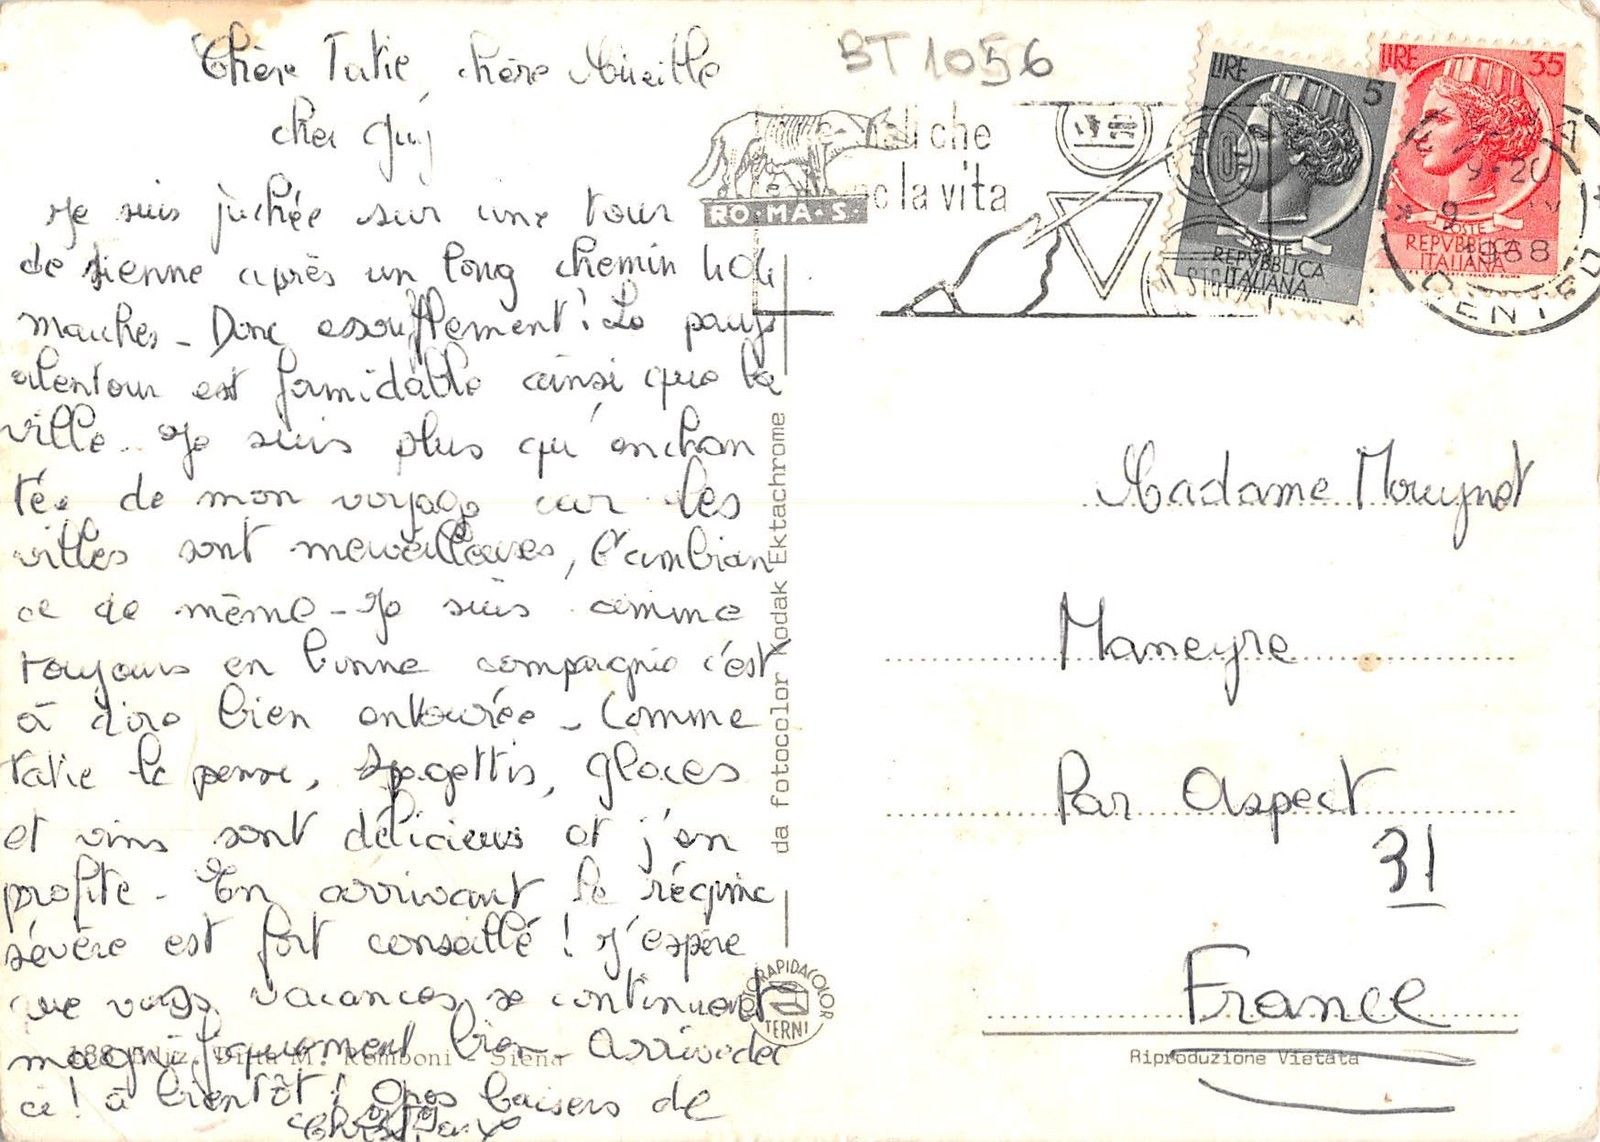 Chère Tatie, chère Mireille
cher Guy
Je suis juchée sur une tour
de Sienne après un long chemin 404
marches - Donc essoufflement! Le pays
alentour est formidable ainsi que la
ville. Je suis plus qu'enchan
tée de mon voyage car les
villes sont merveilleuses, l'ambian
ce de même - Je suis comme
toujours en bonne compagnie c'est
à dire bien entourée - Comme
tatie le pense, spagettis, glaces
et vins sont délicieux et j'en
profite - En arrivant le régime
sévère est fort conseillé! J'espère
que vos vacances se continuent
magnifiquement bien Arriveder
ce! à bientôt! Gros baisers de
BT 1056
che
la vita
RO·MA·S·
LIRE 5
POSTE
REPVBBLICA
ITALIANA
LIRE 35
POSTE
REPVBBLICA
ITALIANA
19-20
1968
Madame Mouynet
Maneyre
Par Aspect
31
France
da fotocolor Kodak Ektachrome
FOTORAPIDACOLOR
TERNI
188 Ediz. Ditta M. Romboni - Siena
Riproduzione Vietata